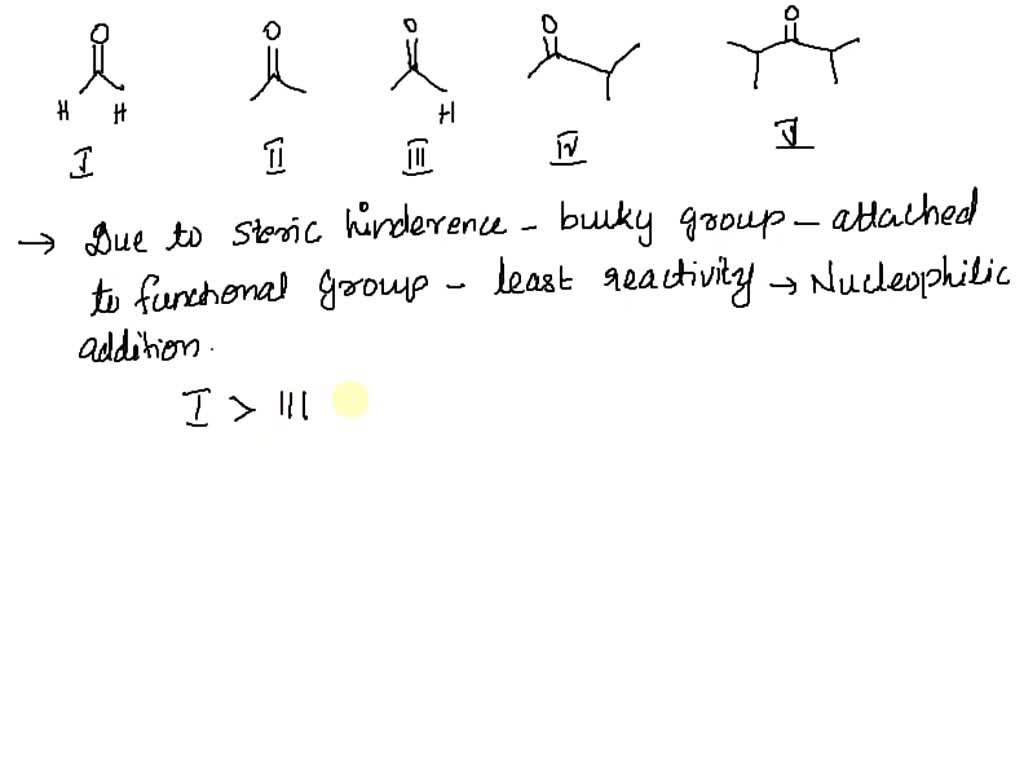 O O O O O
H H H
I II III IV V
→ Due to steric hinderence - bulky group - attached
to functional group - least reactivity → Nucleophilic
addition.
I > III